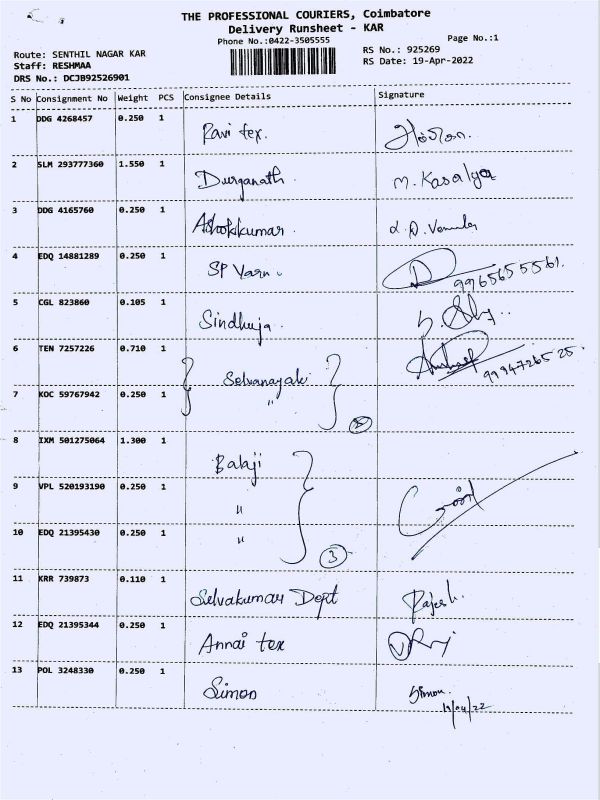 THE PROFESSIONAL COURIERS, Coimbatore
Delivery Runsheet - KAR
Phone No.:0422-3505555
Page No.:1
Route: SENTHIL NAGAR KAR
RS No.: 925269
Staff: RESHMAA
RS Date: 19-Apr-2022
DRS No.: DCJB92526901
S No Consignment No Weight PCS Consignee Details Signature
1 DDG 4268457 0.250 1 Ravi tex.
2 SLM 293777360 1.550 1 Durganath. M. Kasalya
3 DDG 4165760 0.250 1 Ashokkumar.
4 EDQ 14881289 0.250 1 SP Yarn. 9965655561.
5 CGL 823860 0.105 1 Sindhuja.
6 TEN 7257226 0.710 1 Selvanayaki 9994726525.
7 KOC 59767942 0.250 1 "
8 IXM 501275064 1.300 1 Balaji
9 VPL 520193190 0.250 1 "
10 EDQ 21395430 0.250 1 " 3
11 KRR 739873 0.110 1 Selvakumar Dept Rajesh.
12 EDQ 21395344 0.250 1 Annai tex
13 POL 3248330 0.250 1 Simon Simon.
19/04/22